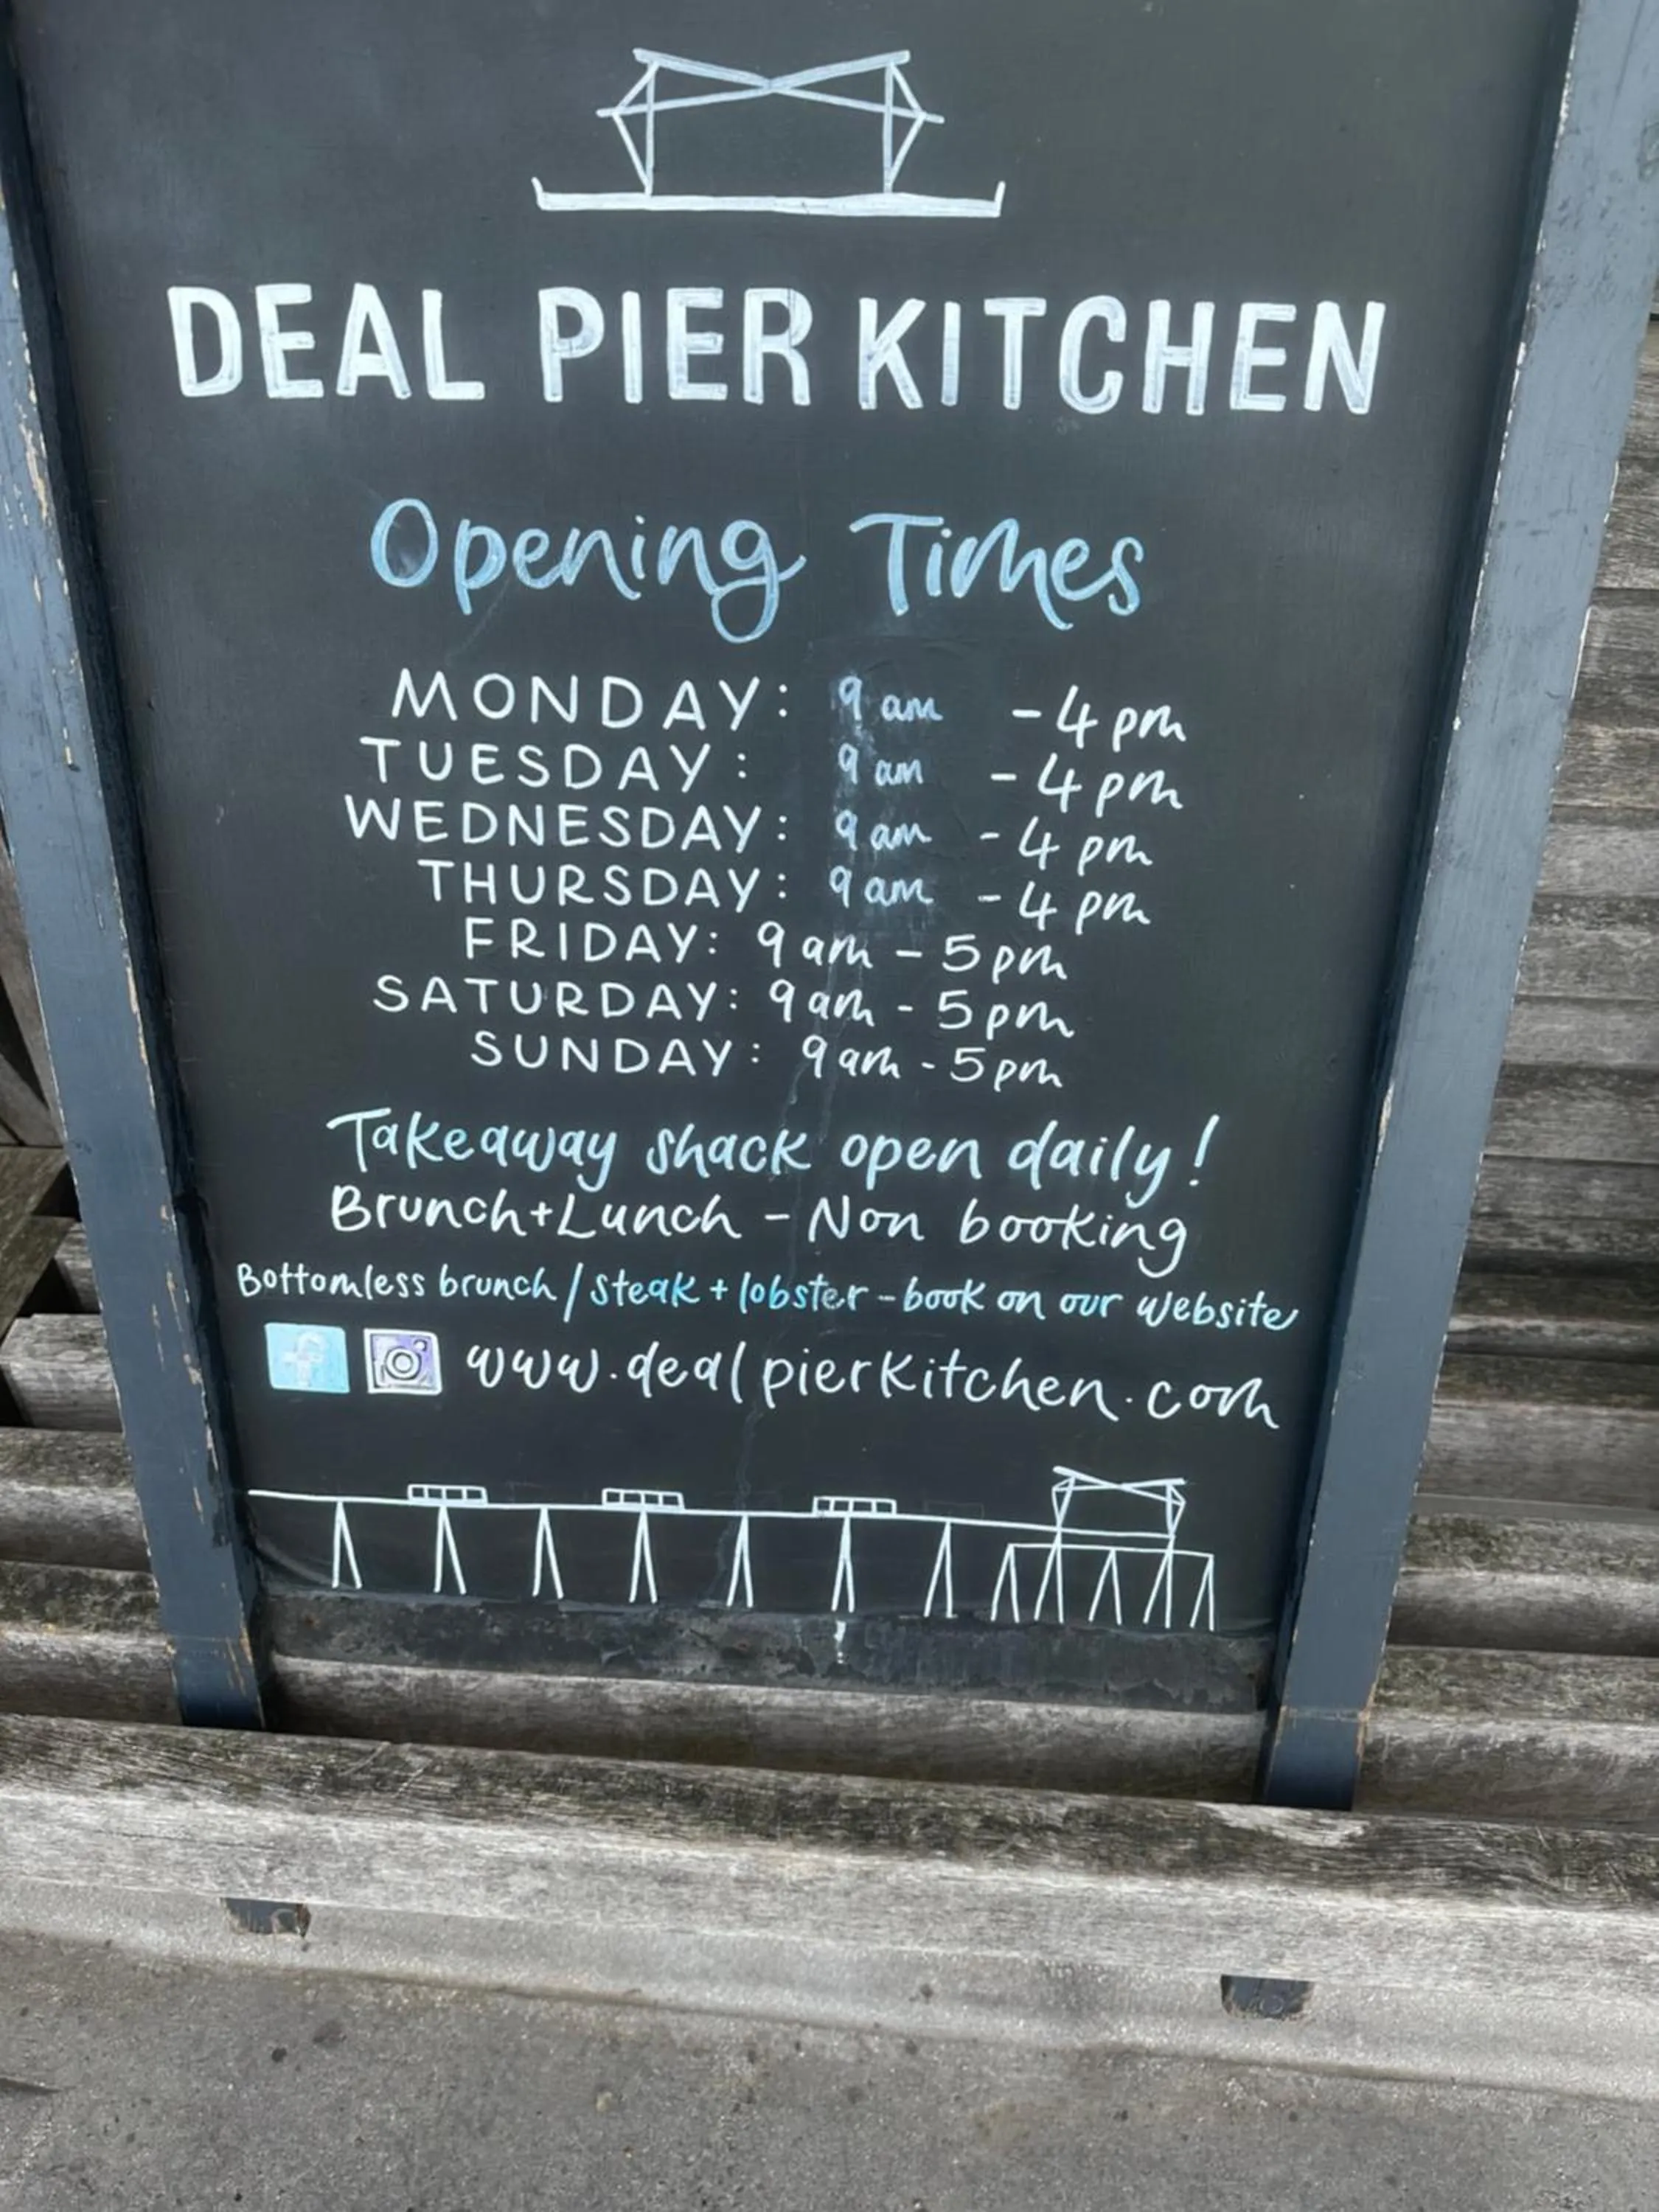 DEAL PIER KITCHEN
Opening Times
MONDAY: 9am - 4pm
TUESDAY: 9am - 4pm
WEDNESDAY: 9am - 4pm
THURSDAY: 9am - 4pm
FRIDAY: 9am - 5pm
SATURDAY: 9am - 5pm
SUNDAY: 9am - 5pm
Takeaway shack open daily!
Brunch+Lunch - Non booking
Bottomless brunch / steak + lobster - book on our website
www.dealpierkitchen.com